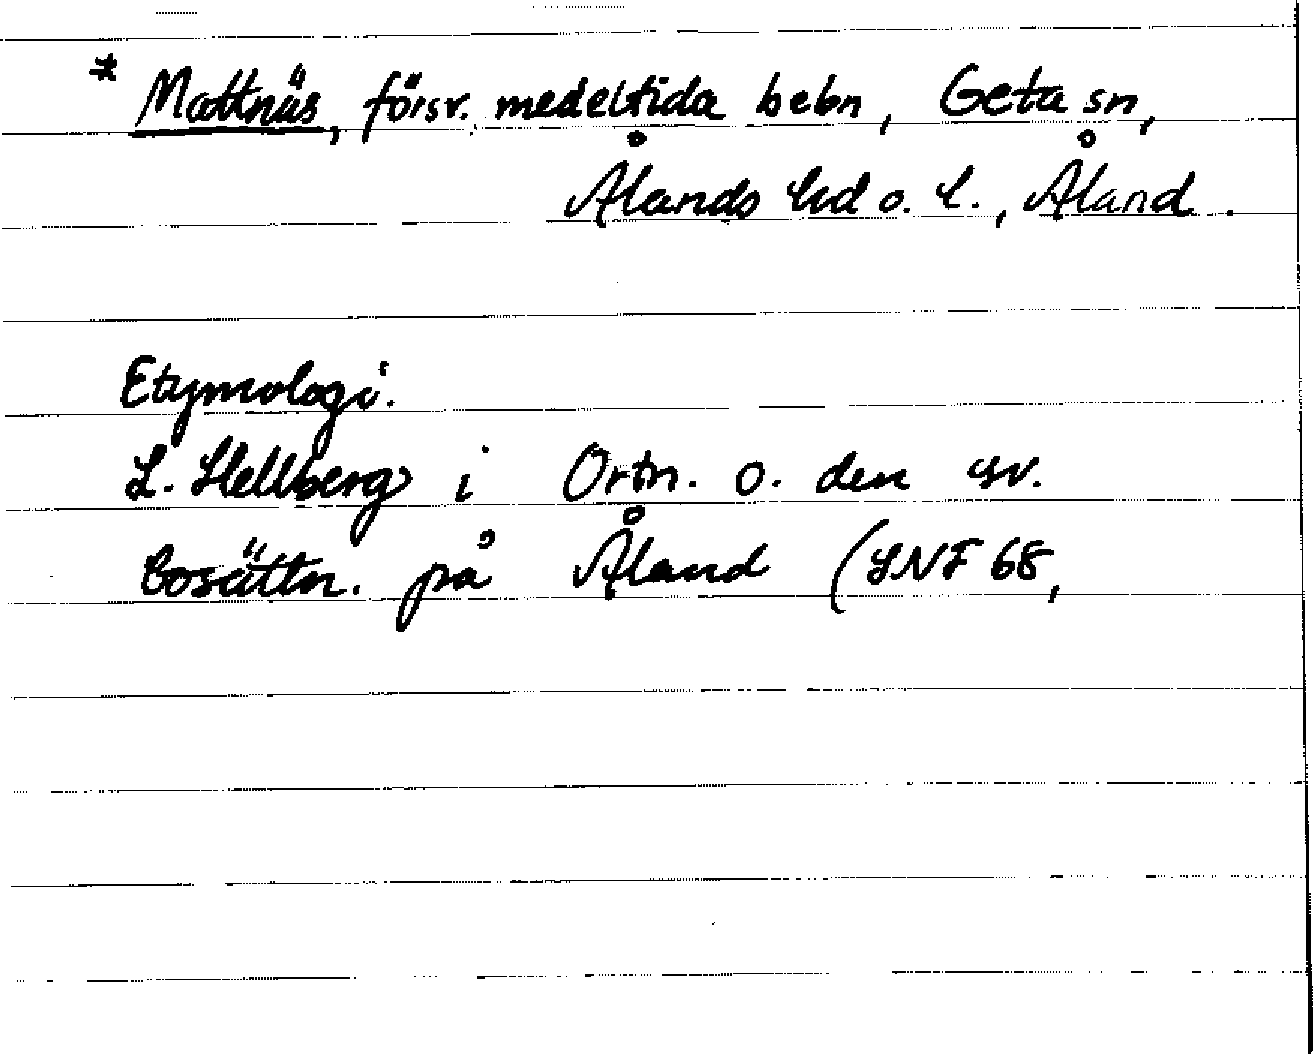 * Mattnäs, försv. medeltida bebn, Geta sn,
Ålands hd o. l., Åland.
Etymologi.
L. Hellberg i Ortn. o. den sv.
bosättn. på Åland (SNF 68,